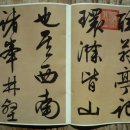 醉翁亭記
環滁皆山
也其西南
諸峰林壑